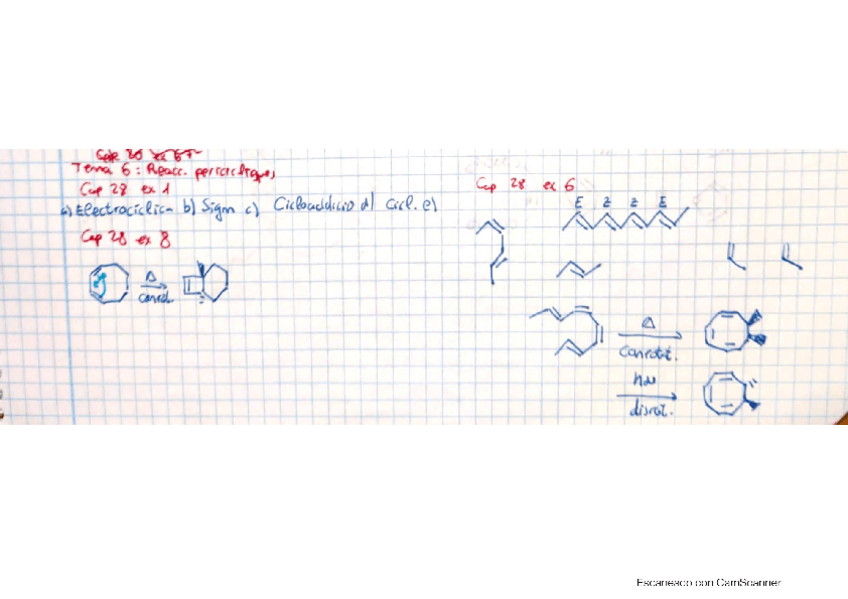 Tema 6: Reacc. pericícliques
Cap 28 ex 1
a) Electrocíclica b) Sigm c) Cicloaddició d) Cicl. e)
Cap 28 ex 8
Δ
conrot.
Cap 28 ex 6
E Z Z E
Δ
Conrotat.
hν
disrot.
Escaneado con CamScanner